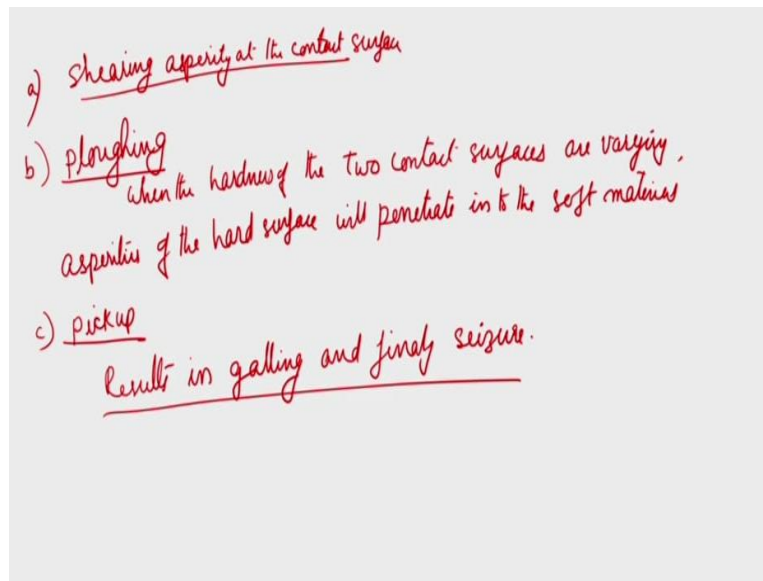 a) Shearing asperity at the contact surface
b) ploughing
when the hardness of the two contact surfaces are varying,
asperities of the hard surface will penetrate in to the soft materials
c) pickup
Results in galling and finaly seizure.